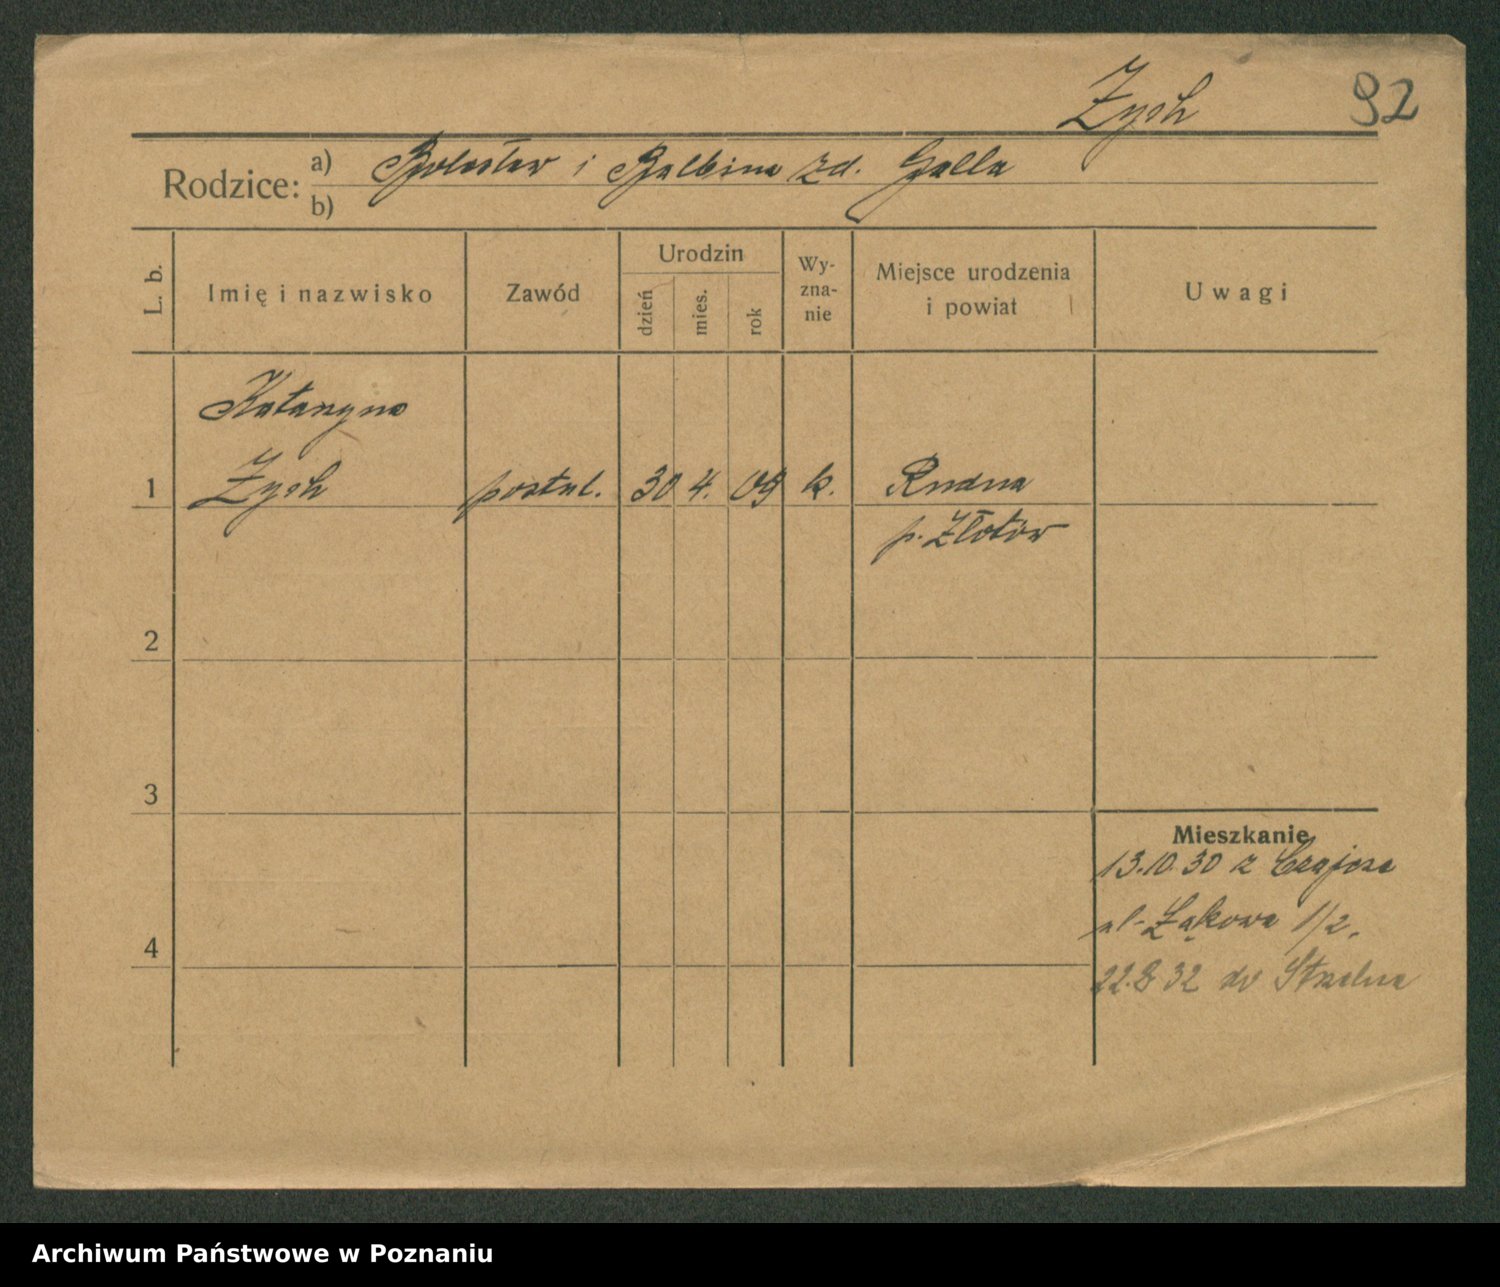 Zych 92
Rodzice: a) Bolesław i Balbina zd. Galla
b)
L. b. Imię i nazwisko Zawód Urodzin dzień mies. rok Wy-zna-nie Miejsce urodzenia i powiat Uwagi
Katarzyna
1 Zych postul. 30 4. 09 k. Rudna
p. Złotów
2
3
Mieszkanie
13.10.30 z Czajcza
ul. Łąkowa 1/2.
4
22.8 32 do Strzelna
Archiwum Państwowe w Poznaniu